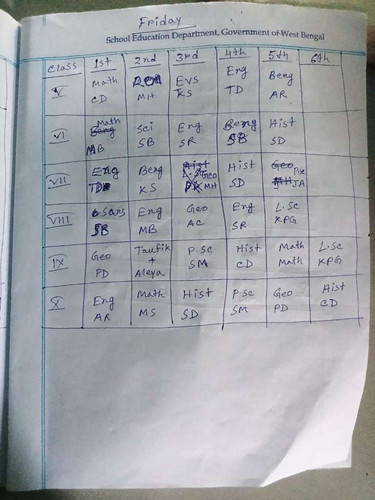 Friday
School Education Department, Government of West Bengal
Class 1st 2nd 3rd 4th 5th 6th
V Math EVS Eng Beng
CD MH KS TD AR
VI Math Sci Eng Beng Hist
MB SB SR SB SD
VII Eng Beng Geo Hist
TD KS MH SD
VIII Sans Eng Geo Eng L.Sc
SB MB AC SR KPG
IX Geo Taufik P.Sc Hist Math L.Sc
PD + Aleya SM CD Math KPG
X Eng Math Hist P.Sc Geo Hist
AR MS SD SM PD CD